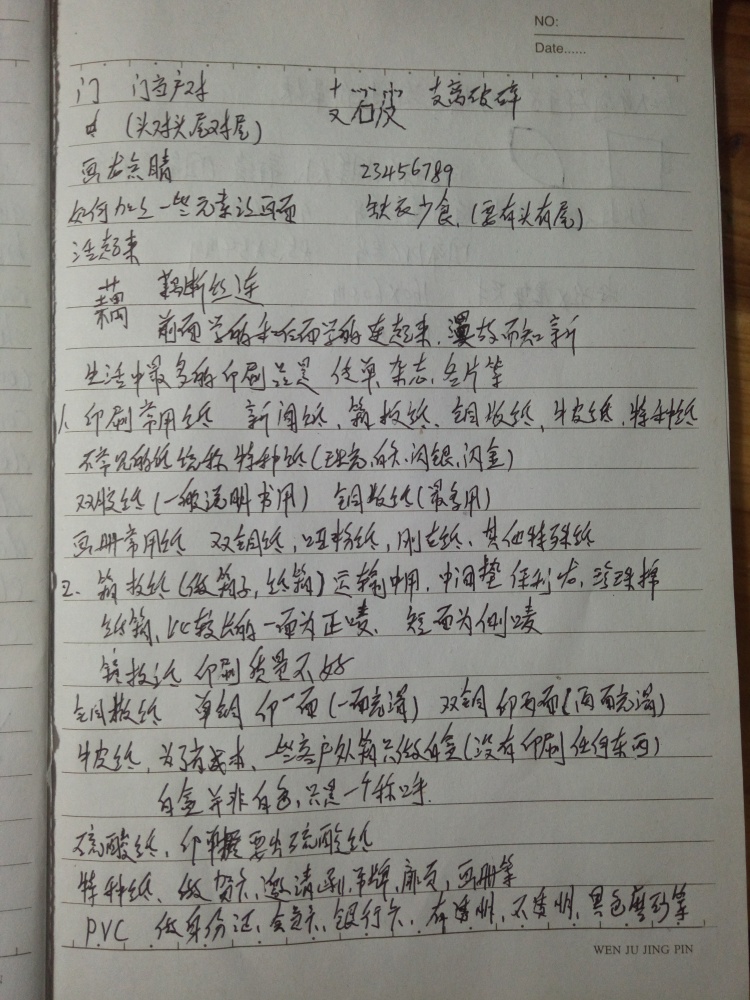 NO:
Date......
门 门当户对 支离破碎
(头对头尾对尾)
画龙点睛 23456789
如何加上一些元素让画面 缺衣少食,(要有头有尾)
活起来
藕 藕断丝连
前面学的和后面学的连起来,温故而知新
生活中最多的印刷品是 传单,杂志,名片等
1、印刷常用纸 新闻纸,箱板纸、铜版纸,牛皮纸,特种纸
不常见的纸统称特种纸(珠光,白卡,闪银,闪金)
双胶纸(一般说明书用) 铜板纸(最多用)
画册常用纸 双铜纸,哑粉纸,刚古纸、其他特殊纸
2、箱板纸(做箱子,纸箱)运输中用,中间垫保利龙,珍珠棉
纸箱,比较长的一面为正唛、短面为侧唛
箱板纸 印刷质量不好
铜板纸 单铜 印一面(一面光滑) 双铜 印两面(两面光滑)
牛皮纸,为了省成本、一些客户外箱只做白盒(没有印刷任何东西)
白盒并非白色,只是一个称呼.
硫酸纸,印 要出硫酸纸
特种纸、做贺卡,邀请函,吊牌,扉页,画册等
PVC 做身份证,会员卡、银行卡、有透明,不透明,黑色磨砂等
WEN JU JING PIN